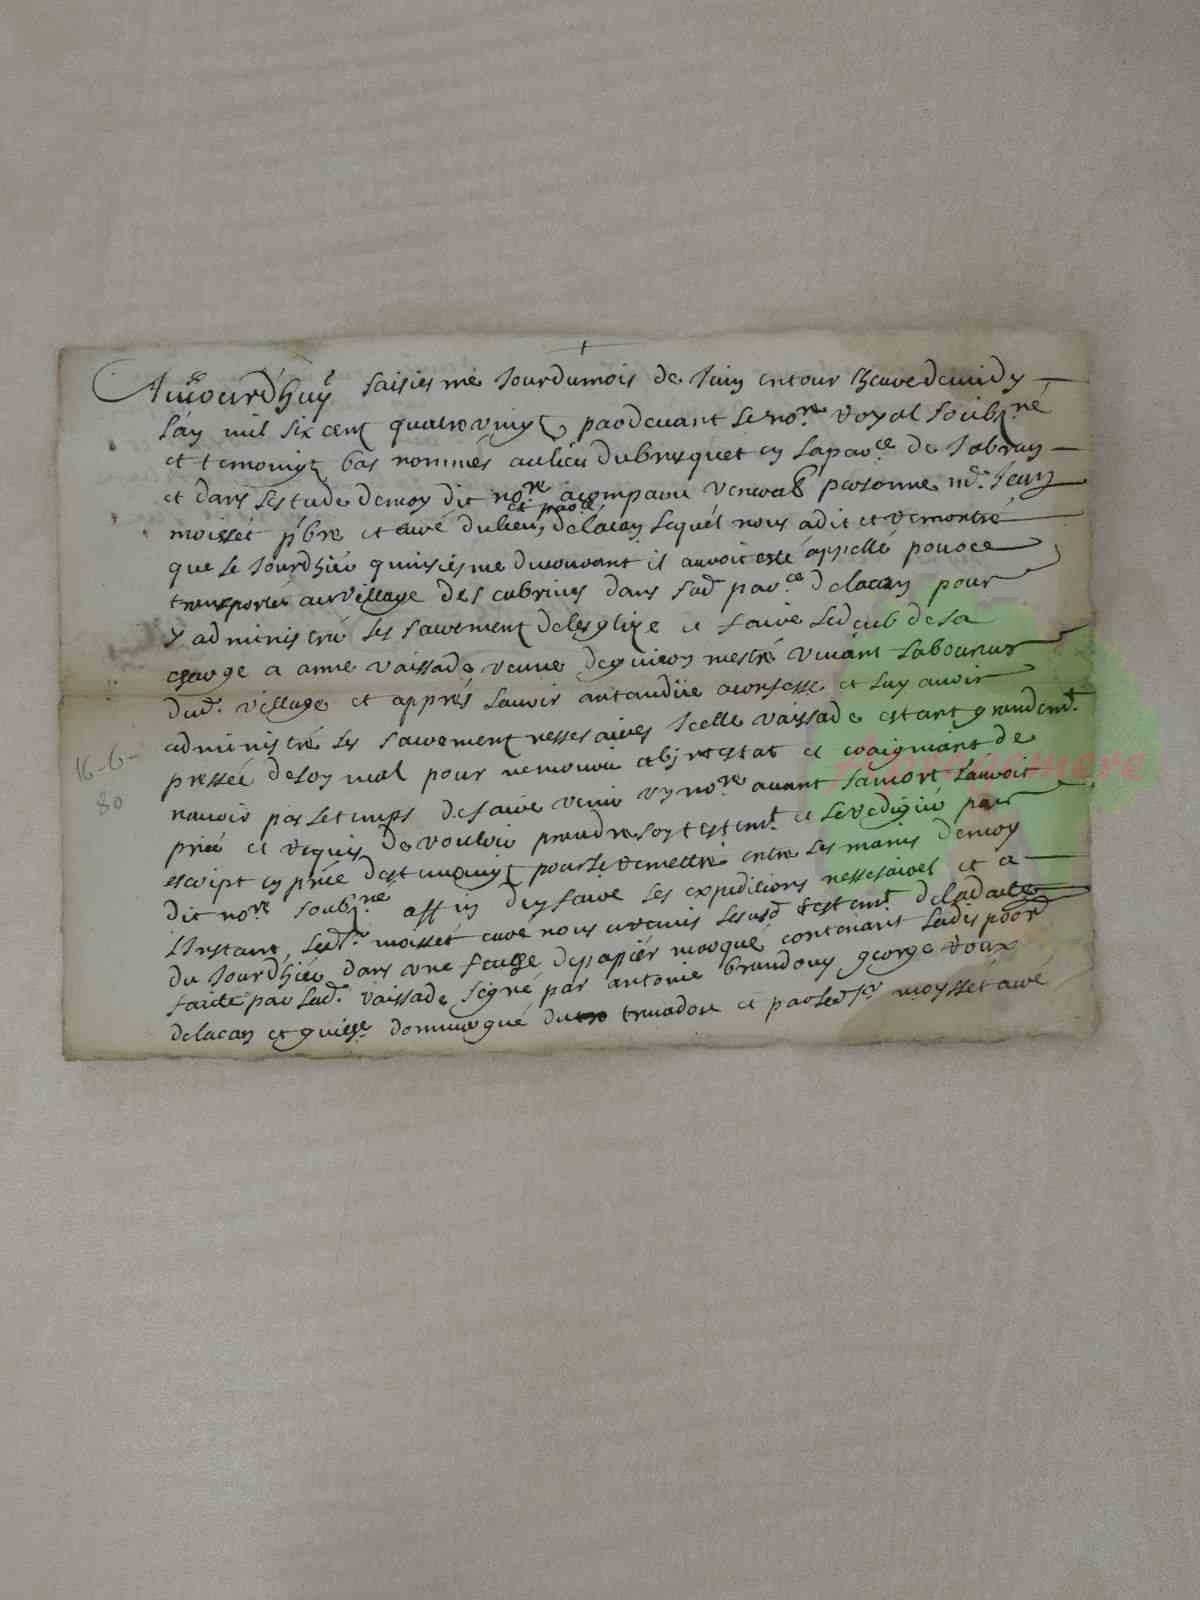 Aujourd'huy saisiesme jour du mois de Juin entour lheure de midy
l'an mil six cent quatre vingt pardevant le no.re royal soubz.né
et temoingz bas nommés au lieu du bruquet en la par.ce de Jabrun
et dans lestude de moy dit no.re a comparu venerab. personne m.e Jean
moisset p̄bre et curé du lieu et par.ce de lacan lequel nous a dit et remontré
que le jourdhier quinsiesme du courant il auroit esté appellé pour ce
transporter au village des cabrins dans sad. par.ce de lacan pour
y administré les sacrement de lesglize et faire le deub de sa
charge a anne vaissade veuve de guion mestre vivant laboureur
dud. village et apprés lauoir antandue a confesse et luy auoir
administré les sacrement nessesaires icelle vaissade estant grandem.t
pressée de son mal pour ne mourir ab intestat et craignant de
nauoir pas le temps de faire venir un no.re avant sa mort lauroit
prié et requis de vouloir prendre son testem.t et le rediger par
escript en prnce des temoingt pour le remettre entre les mains de moy
dit no.re soubz.né affin den faire les expeditions nessesaires et a
linstant led. s.r moisset curé nous a remis le susd. testem.t de la datte
du jourdhier dans une feulhe de papier marqué contenant la dispoōn
faite par lad. vaissade signé par antoine brandouy george roux
de lacan et guilhe. domergué du truadou et par led. s.r moysset curé
16-6-
80